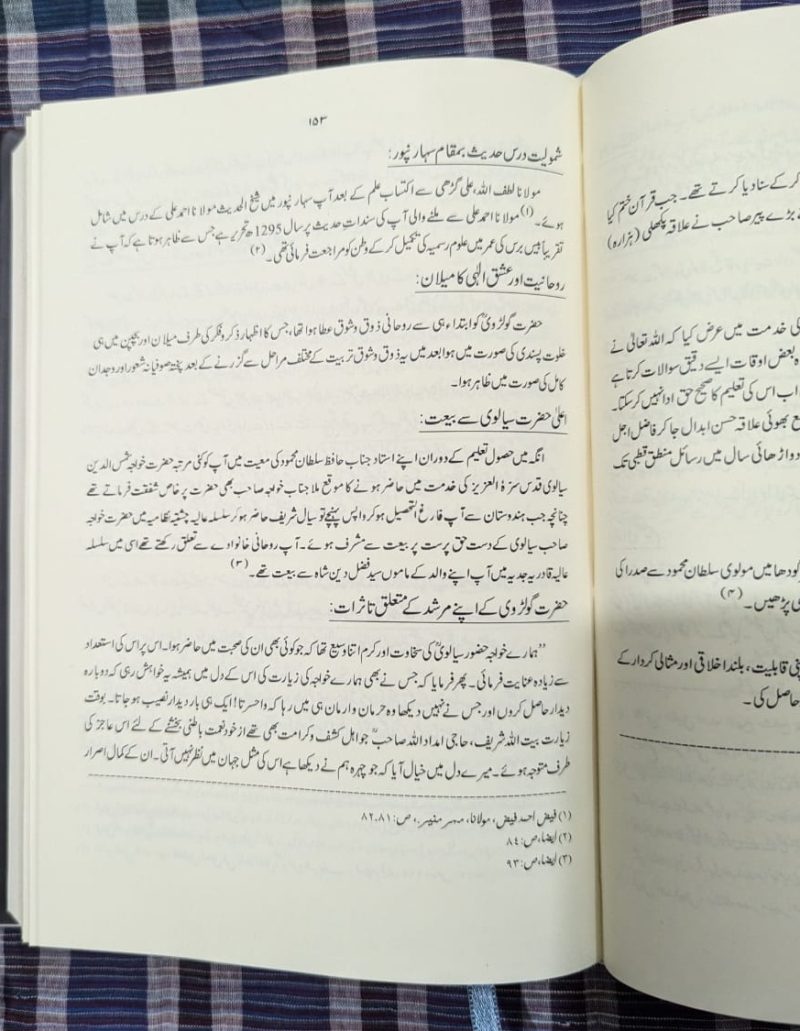 کر کے سنا دیا کرتے تھے۔ جب قرآن ختم کیا
بڑے پیر صاحب نے علاقہ پکھلی (ہزارہ)
کی خدمت میں عرض کیا کہ اللہ تعالیٰ نے
بعض اوقات ایسے دقیق سوالات کرتا ہے
اب اس کی تعلیم کا صحیح حق ادا نہیں کر سکتا۔
بھوئی علاقہ حسن ابدال جا کر فاضل اجل
دو اڑھائی سال میں رسائل منطق قطبی تک
گودھا میں مولوی سلطان محمود سے صدرا کی
پڑھیں۔(۴)
قابلیت، بلند اخلاقی اور مثالی کردار کے
حاصل کی۔
۱۵۳
شمولیت درس حدیث بمقام سہارنپور:
مولانا لطف اللہ علی گڑھی سے اکتساب علم کے بعد آپ سہارنپور میں شیخ الحدیث مولانا احمد علی کے درس میں شامل
ہوئے۔(۱) مولانا احمد علی سے ملنے والی آپ کی سندات حدیث پر سال 1295ھ تحریر ہے جس سے ظاہر ہوتا ہے کہ آپ نے
تقریباً بیس برس کی عمر میں علوم رسمیہ کی تکمیل کر کے وطن کو مراجعت فرمائی تھی۔(۲)
روحانیت اور عشق الٰہی کا میلان:
حضرت گولڑویؒ کو ابتداء ہی سے روحانی ذوق وشوق عطا ہوا تھا، جس کا اظہار ذکر وفکر کی طرف میلان اور بچپن میں ہی
خلوت پسندی کی صورت میں ہوا بعد میں یہ ذوق وشوق تربیت کے مختلف مراحل سے گزرنے کے بعد پختہ صوفیانہ شعور اور وجدان
کامل کی صورت میں ظاہر ہوا۔
اعلیٰ حضرت سیالوی سے بیعت:
انگہ میں حصول تعلیم کے دوران اپنے استاد جناب حافظ سلطان محمود کی معیت میں آپ کو کئی مرتبہ حضرت خواجہ شمس الدین
سیالوی قدس سرّہ العزیز کی خدمت میں حاضر ہونے کا موقع ملا جناب خواجہ صاحب بھی حضرت پر خاص شفقت فرماتے تھے
چنانچہ جب ہندوستان سے آپ فارغ التحصیل ہو کر واپس پہنچے تو سیال شریف حاضر ہو کر سلسلہ عالیہ چشتیہ نظامیہ میں حضرت خواجہ
صاحب سیالوی کے دست حق پرست پر بیعت سے مشرف ہوئے۔ آپ روحانی خانوادے سے تعلق رکھتے تھے اسی میں سلسلہ
عالیہ قادریہ جدیہ میں آپ اپنے والد کے ماموں سید فضل دین شاہ سے بیعت تھے۔(۳)
حضرت گولڑوی کے اپنے مرشد کے متعلق تاثرات:
”ہمارے خواجہ حضور سیالویؒ کی سخاوت اور کرم اتنا وسیع تھا کہ جو کوئی بھی ان کی صحبت میں حاضر ہوا۔ اس پر اس کی استعداد
سے زیادہ عنایت فرمائی۔ پھر فرمایا کہ جس نے بھی ہمارے خواجہ کی زیارت کی اس کے دل میں ہمیشہ یہ خواہش رہی کہ دوبارہ
دیدار حاصل کروں اور جس نے نہیں دیکھا وہ حرمان وارمان ہی میں رہا کہ واحسرتا! ایک ہی بار دیدار نصیب ہو جاتا۔ بوقت
زیارت بیت اللہ شریف، حاجی امداد اللہ صاحبؒ جو اہل کشف وکرامت بھی تھے از خود نعمت باطنی بخشنے کے لئے اس عاجز کی
طرف متوجہ ہوئے۔ میرے دل میں خیال آیا کہ جو چہرہ ہم نے دیکھا ہے اس کی مثل جہان میں نظر نہیں آتی۔ ان کے کمال اصرار
(۱) فیض احمد فیض، مولانا، مہر منیر، ص: ۸۲،۸۱
(۲) ایضا، ص: ۸۴
(۳) ایضا، ص: ۹۳